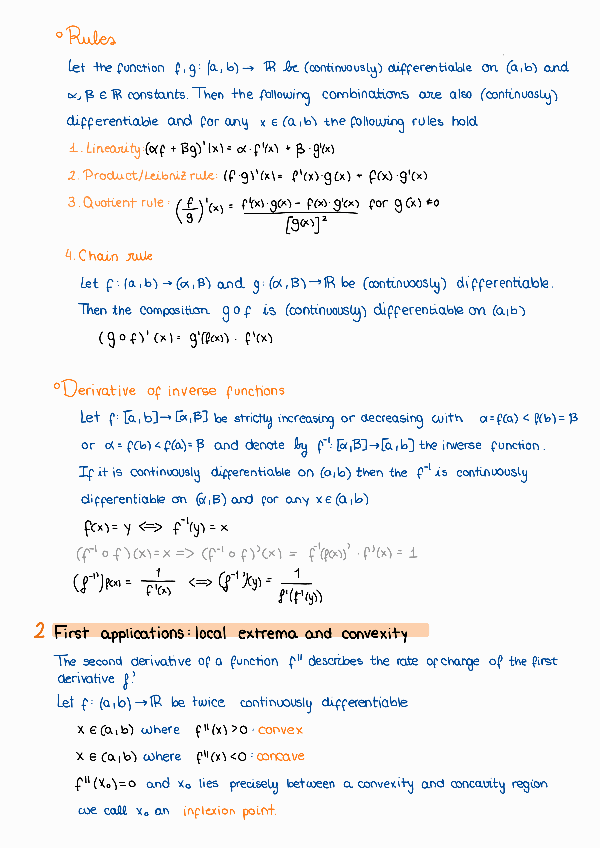 ° Rules
Let the function f, g: (a, b) → ℝ be (continuously) differentiable on (a, b) and
α, β ∈ ℝ constants. Then the following combinations are also (continuosly)
differentiable and for any x ∈ (a, b) the following rules hold
1. Linearity: (αf + βg)'(x) = α · f'(x) + β · g'(x)
2. Product/Leibniz rule: (f · g)'(x) = f'(x) · g(x) + f(x) · g'(x)
3. Quotient rule: (f/g)'(x) = f'(x) · g(x) − f(x) · g'(x) / [g(x)]² for g(x) ≠ 0
4. Chain rule
Let f: (a, b) → (α, β) and g: (α, β) → ℝ be (continuously) differentiable.
Then the composition g ∘ f is (continuously) differentiable on (a, b)
(g ∘ f)'(x) = g'(f(x)) · f'(x)
° Derivative of inverse functions
Let f: [a, b] → [α, β] be strictly increasing or decreasing with α = f(a) < f(b) = β
or α = f(b) < f(a) = β and denote by f⁻¹: [α, β] → [a, b] the inverse function.
If it is continuously differentiable on (a, b) then the f⁻¹ is continuously
differentiable on (α, β) and for any x ∈ (a, b)
f(x) = y <=> f⁻¹(y) = x
(f⁻¹ ∘ f)(x) = x => (f⁻¹ ∘ f)'(x) = f⁻¹(f(x))' · f'(x) = 1
(f⁻¹)'f(x) = 1/f'(x) <=> (f⁻¹)'(y) = 1/f'(f⁻¹(y))
2 First applications: local extrema and convexity
The second derivative of a function f'' describes the rate of change of the first
derivative f'
Let f: (a, b) → ℝ be twice continuously differentiable
x ∈ (a, b) where f''(x) > 0 : convex
x ∈ (a, b) where f''(x) < 0 : concave
f''(x₀) = 0 and x₀ lies precisely between a convexity and concavity region
we call x₀ an inflexion point.